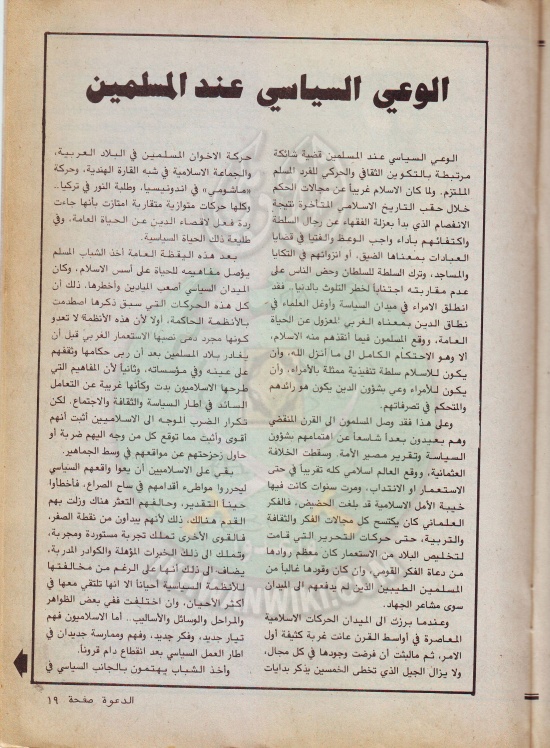 الوعي السياسي عند المسلمين
الوعي السياسي عند المسلمين قضية شائكة
مرتبطة بالتكوين الثقافي والحركي للفرد المسلم
الملتزم. ولما كان الاسلام غريباً عن مجالات الحكم
خلال حقب التاريخ الاسلامي المتأخرة نتيجة
الانفصام الذي بدأ بعزلة الفقهاء عن رجال السلطة
واكتفائهم بأداء واجب الوعظ والفتيا في قضايا
العبادات بمعناها الضيق، أو انزوائهم في التكايا
والمساجد، وترك السلطة للسلطان وحض الناس على
عدم مقاربته اجتناباً لخطر التلوث بالدنيا.. فقد
انطلق الامراء في ميدان السياسة وأوغل العلماء في
نطاق الدين بمعناه الغربي المعزول عن الحياة
العامة، ووقع المسلمون فيما أنقذهم منه الاسلام،
ألا وهو الاحتكام الكامل الى ما أنزل الله، وأن
يكون للأسلام سلطة تنفيذية ممثلة بالأمراء، وأن
يكون للأمراء وعي بشؤون الدين يكون هو رائدهم
والمتحكم في تصرفاتهم.
وعلى هذا فقد وصل المسلمون الى القرن المنقضي
وهم بعيدون بعداً شاسعاً عن اهتمامهم بشؤون
السياسة وتقرير مصير الأمة. وسقطت الخلافة
العثمانية، ووقع العالم اسلامي كله تقريباً في حتى
الاستعمار أو الانتداب، ومرت سنوات كانت فيها
خيبة الأمل الاسلامية قد بلغت الحضيض، فالفكر
العلماني كان يكتسح كل مجالات الفكر والثقافة
والتربية، حتى حركات التحرير التي قامت
لتخليص البلاد من الاستعمار كان معظم روادها
من دعاة الفكر القومي، وان كان وقودها غالباً من
المسلمين الطيبين الذين لم يدفعهم الى الميدان
سوى مشاعر الجهاد.
وعندما برزت الى الميدان الحركات الاسلامية
المعاصرة في أواسط القرن عانت غربة كثيفة أول
الامر، ثم مالبثت أن فرضت وجودها في كل مجال،
ولا يزال الجيل الذي تخطى الخمسين يذكر بدايات
حركة الاخوان المسلمين في البلاد العربية،
والجماعة الاسلامية في شبه القارة الهندية، وحركة
«ماشومي» في اندونيسيا، وطلبة النور في تركيا..
وكلها حركات متوازية متقاربة امتازت بأنها جاءت
ردة فعل لاقصاء الدين عن الحياة العامة، وفي
طليعة ذلك الحياة السياسية.
بعد هذه اليقظة العامة أخذ الشباب المسلم
يؤصل مفاهيمه للحياة على أسس الاسلام، وكان
الميدان السياسي أصعب الميادين وأخطرها، ذلك أن
كل هذه الحركات التي سبق ذكرها اصطدمت
بالأنظمة الحاكمة، أولا لأن هذه الأنظمة لا تعدو
كونها مجرد دمى نصبها الاستعمار الغربي قبل أن
يغادر بلاد المسلمين بعد أن ربى حكامها وثقفهم
على عينه وفي مؤسساته، وثانياً لأن المفاهيم التي
طرحها الاسلاميون بدت وكأنها غريبة عن التعامل
السائد في اطار السياسة والثقافة والاجتماع. لكن
تكرار الضرب الموجه الى الاسلاميين أثبت أنهم
أقوى وأثبت مما توقع كل من وجه اليهم ضربة أو
حاول زحزحتهم عن مواقعهم في وسط الجماهير.
بقي على الاسلاميين أن يعوا واقعهم السياسي
ليحرروا مواطىء أقدامهم في ساح الصراع، فأخطأوا
حيناً التقدير، وحالفهم التعثر هناك وزلت بهم
القدم هنالك، ذلك لأنهم يبدأون من نقطة الصفر،
فالقوى الأخرى تملك تجربة مستوردة ومجربة،
وتملك الى ذلك الخبرات المؤهلة والكوادر المدربة،
يضاف الى ذلك أنها على الرغم من مخالفتها
للأنظمة السياسية أحياناً الا انها تلتقي معها في
أكثر الأحيان، وان اختلفت ففي بعض الظواهر
والمراحل والوسائل والأساليب.. أما الاسلاميون فهم
تيار جديد، وفكر جديد، وفهم وممارسة جديدان في
اطار العمل السياسي بعد انقطاع دام قرونا.
وأخذ الشباب يهتمون بالجانب السياسي في
الدعوة صفحة ١٩